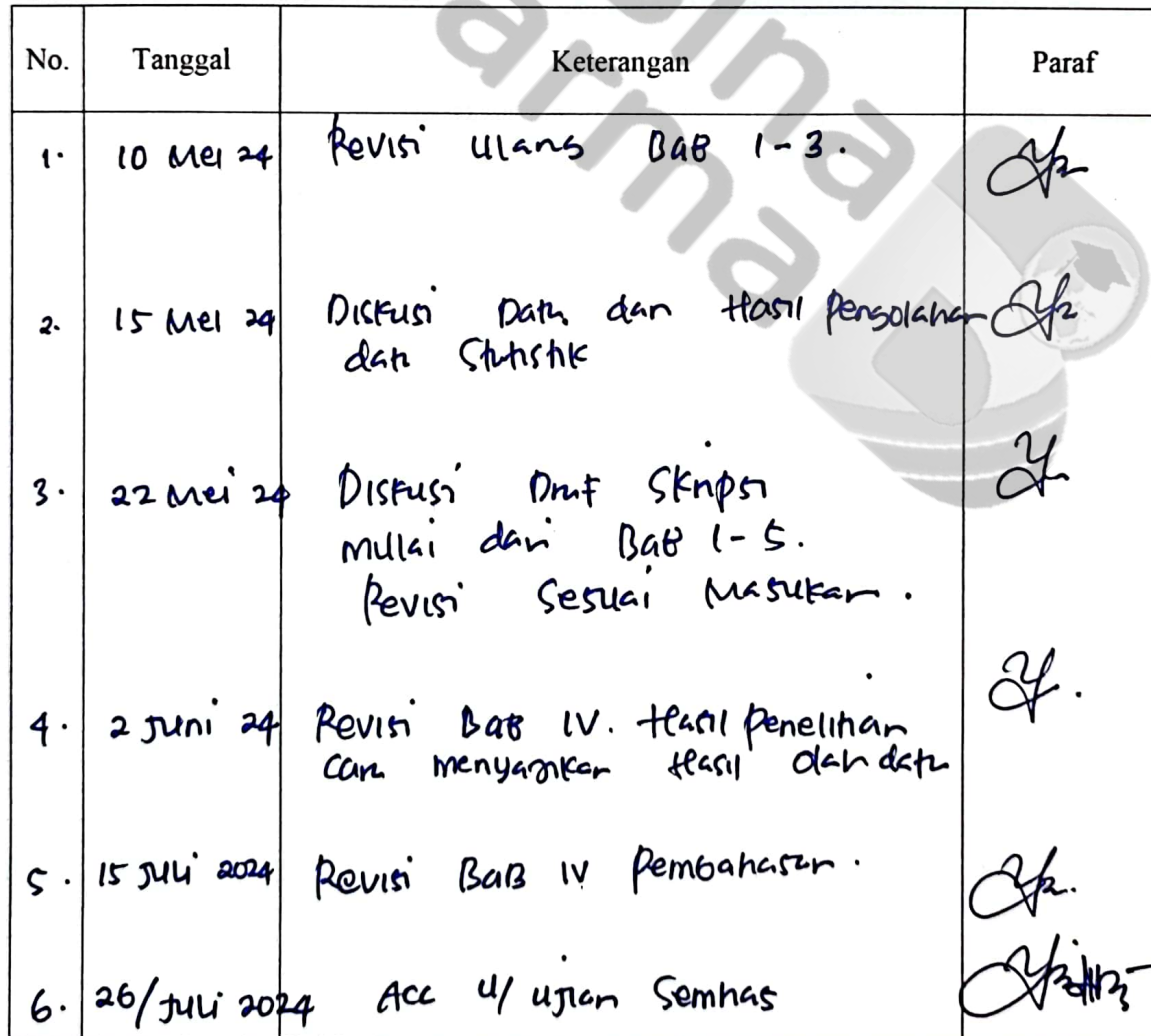 No. Tanggal Keterangan Paraf
1. 10 Mei 24 Revisi Ulang BAB 1-3.
2. 15 Mei 24 Diskusi Data dan Hasil Pengolahan
data Statistik
3. 22 Mei 24 Diskusi Draf Skripsi
mulai dari BAB 1-5.
Revisi Sesuai Masukan.
4. 2 Juni 24 Revisi Bab IV. Hasil Penelitian
cara menyajikan Hasil dan data
5. 15 Juli 2024 Revisi BAB IV Pembahasan.
6. 26/Juli 2024 Acc u/ ujian Semhas